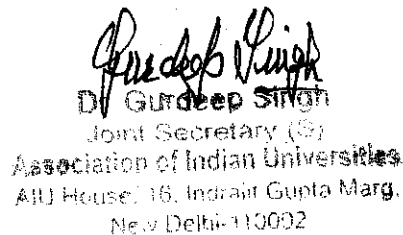 Gurdeep Singh
Dr Gurdeep Singh
Joint Secretary (S)
Association of Indian Universities
AIU House, 16, Indrajit Gupta Marg,
New Delhi-110002